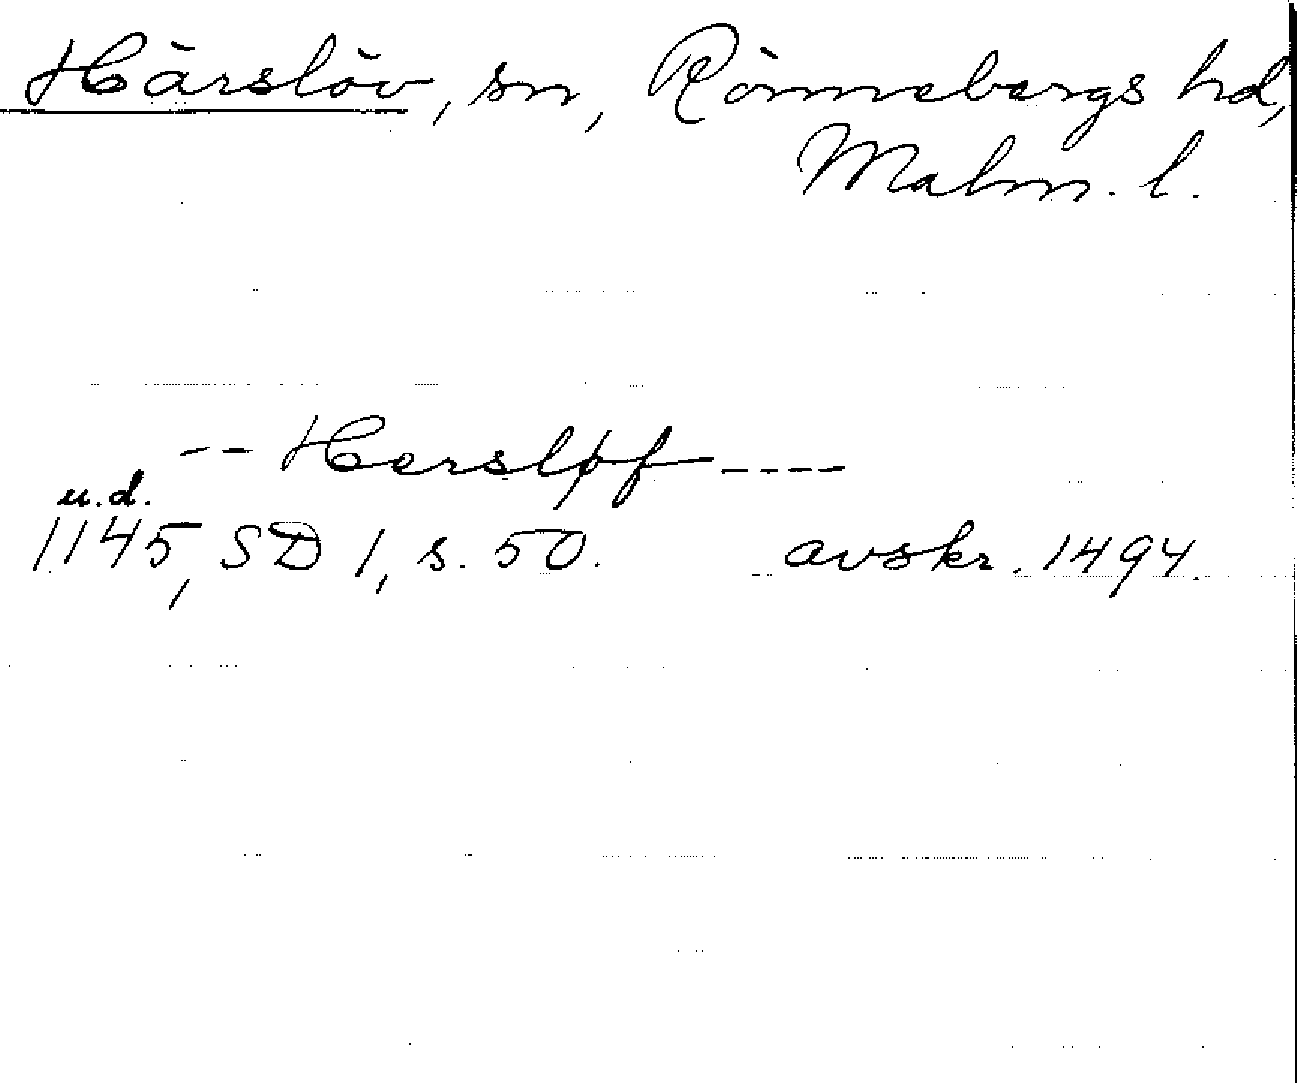 Härslöv, sn, Rönnebergs hd,
Malm. l.
-- Hersløf ----
u.d.
1145, SD 1, s. 50. avskr. 1494.